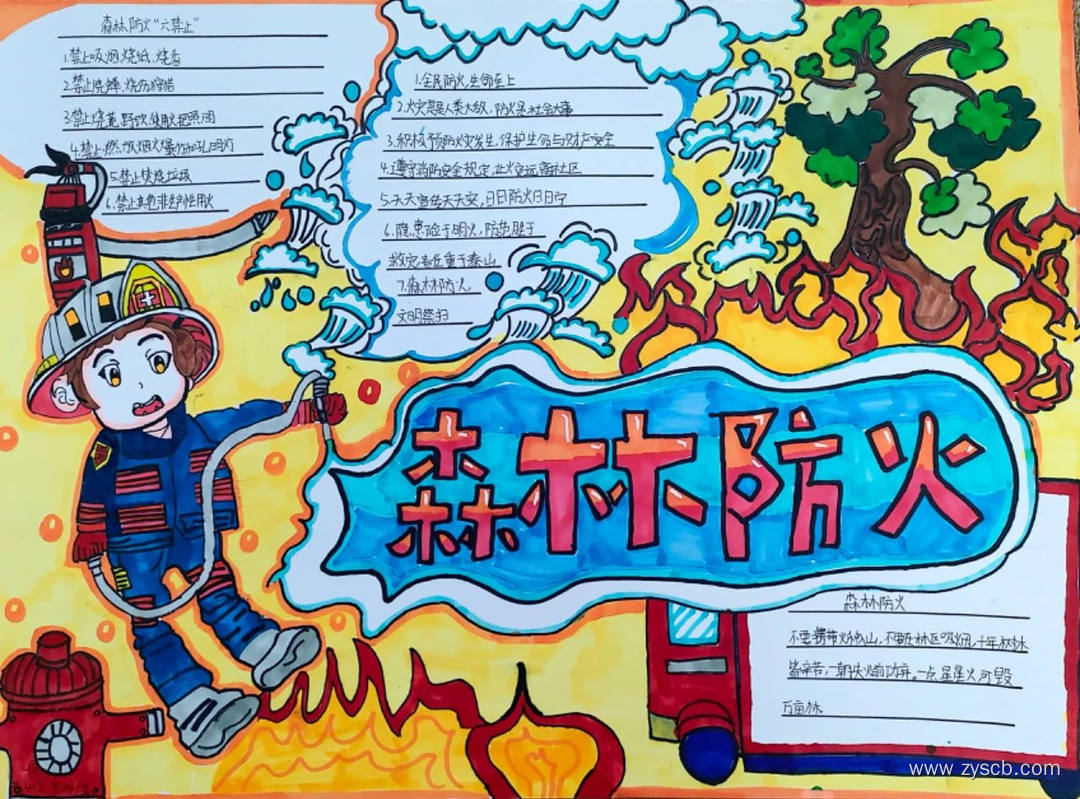 森林防火"六禁止"
1.禁止吸烟、烧纸、烧香
2.禁止烧蜂、烧伤狩猎
3.禁止烧荒、野炊、使用火把照明
4.禁止燃放烟火爆竹和孔明灯
5.禁止焚烧垃圾
6.禁止其他非生产性用火
1.全民防火,生命至上
2.火灾是人类大敌,防火是社会大事
3.积极预防火灾发生,保护生命与财产安全
4.遵守消防安全规定,让火灾远离社区
5.天天宣传天天安,日日防火日日宁
6.隐患险于明火,防范胜于
救灾责任重于泰山
7.森林防火,
文明祭扫
森林防火
森林防火
不要携带火种山,不要在林区吸烟,十年树木
皆辛苦,一朝失火前功弃。一点星星火可毁
万亩林
www.zyscb.com